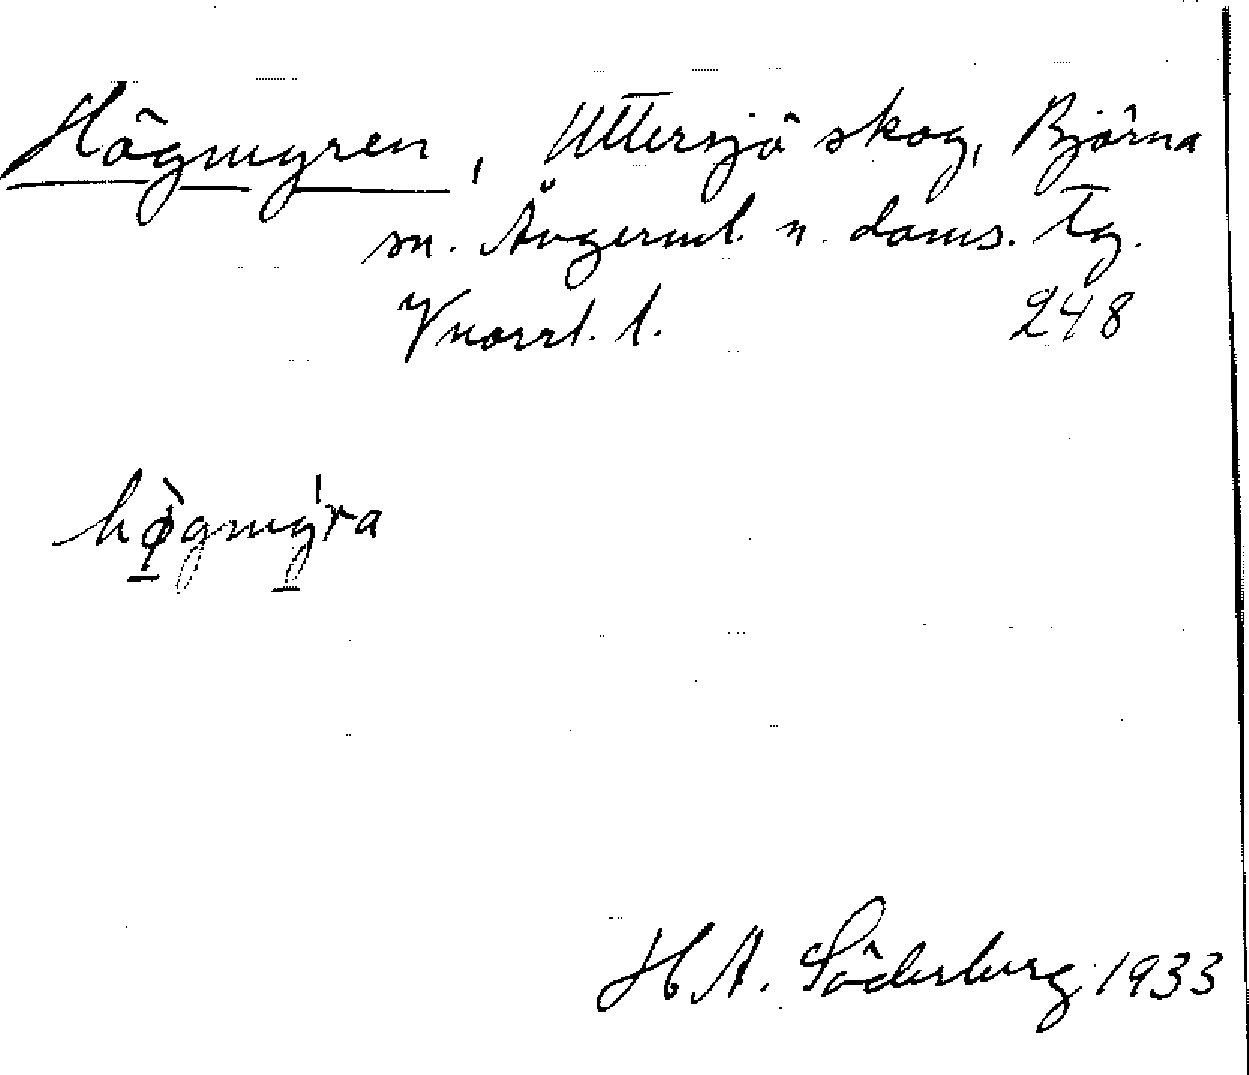 Högmyren, Uttersjö skog, Björna
sn. Ångerml. n. doms. Tg.
Vnorrl. l. 248
hø̀gmy̱̍ra
H A. Söderberg 1933